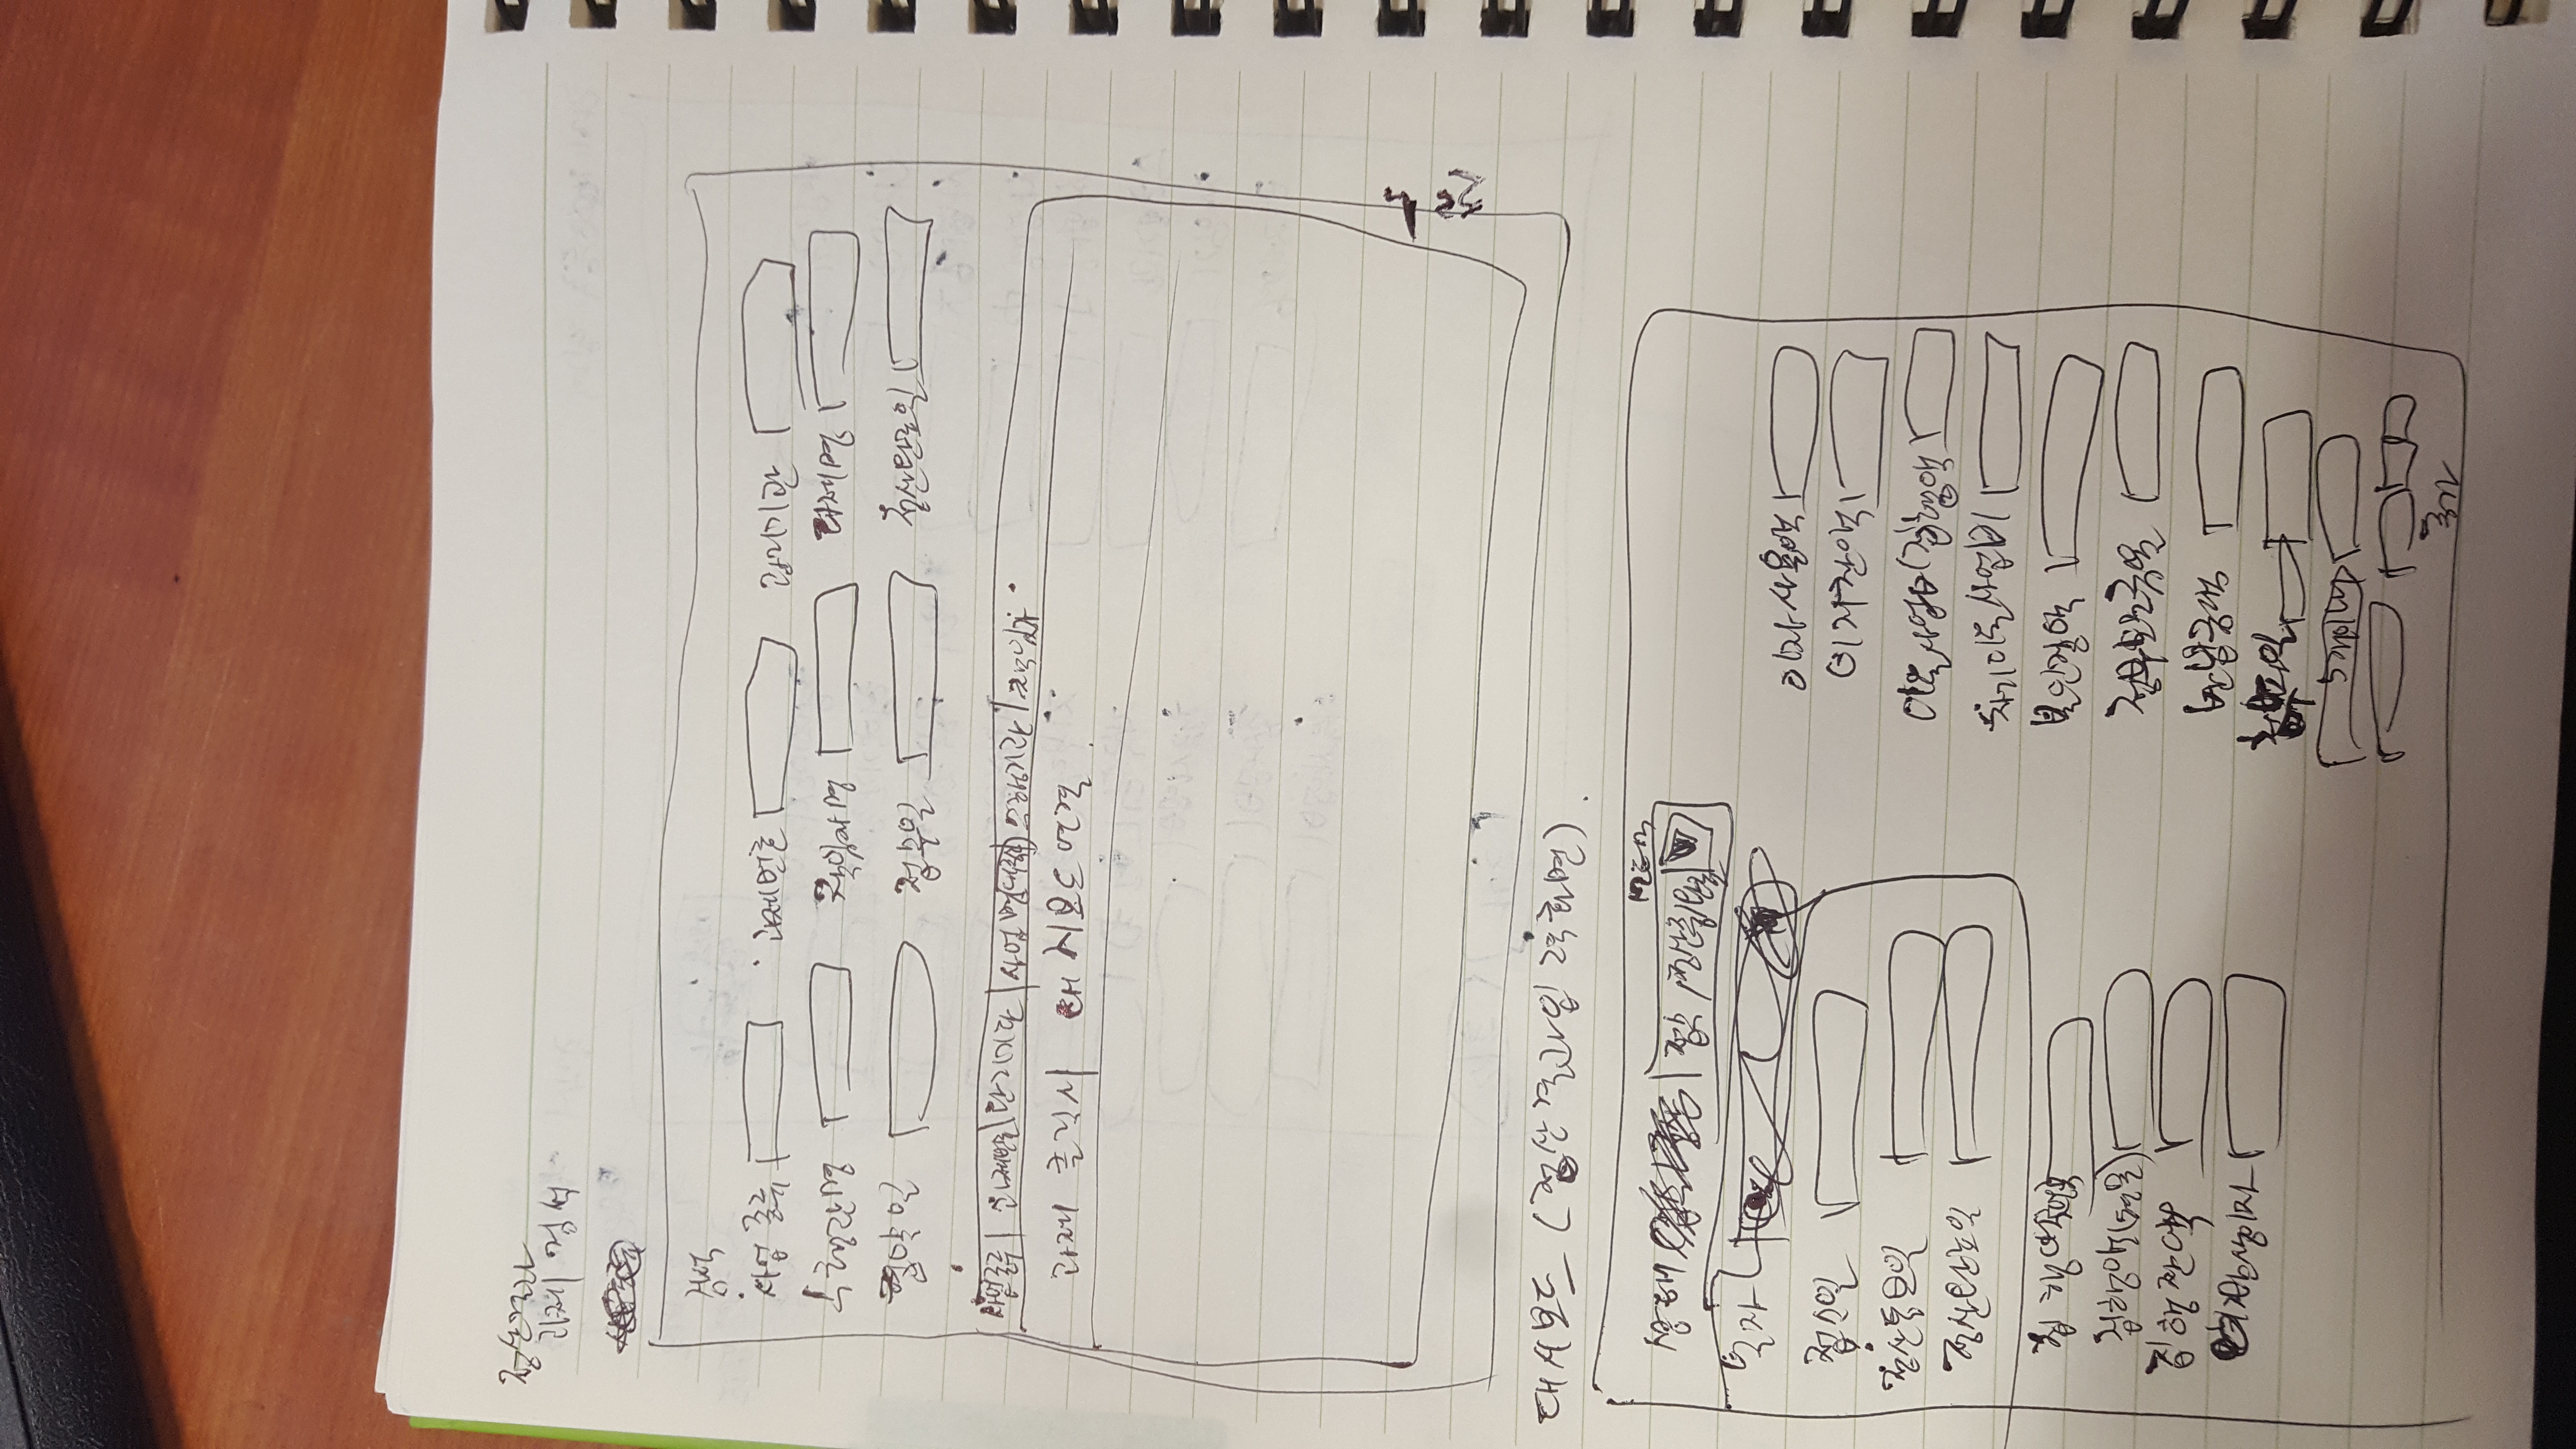 정산결과
과제 검색
검색
사업종류 과제번호 관리기관
수행관명 책임자명 과제명
협약일 접수일 정산완료일
사업종류 과제번호 관리기관 사업명 수행기관 책임자
과제 클릭시 대시보드 연결.
대시보드 (정산결과입력화면).
상태 접수/정산중/완료
일자
접수일
정산통보일
정산완료일
집행액
집행액(현물)
집행잔액
이자사용액
이자잔액
이월사업비(집행액
차기이월사업비
불인정액
정부보조금율
반납금액
첨부파일
5개이내
추가